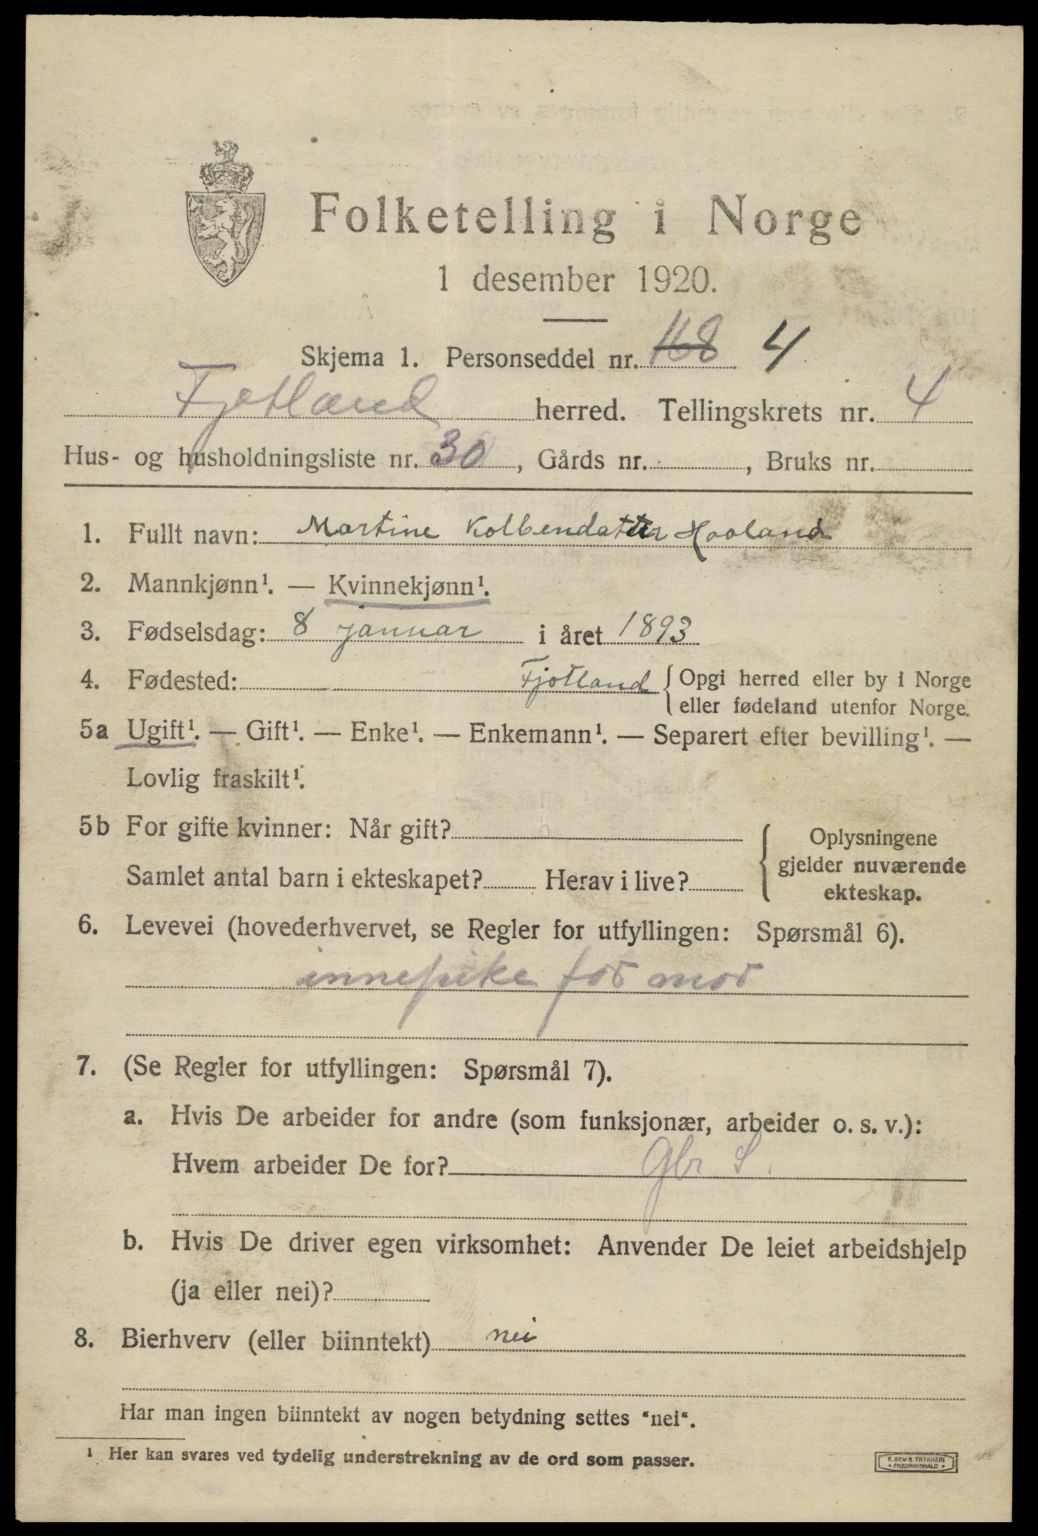 Folketelling i Norge
1 desember 1920.
Skjema 1. Personseddel nr. 168 4
Fjotland herred. Tellingskrets nr. 4
Hus- og husholdningsliste nr. 30, Gårds nr. , Bruks nr.
1. Fullt navn: Martine Kolbendatter Haaland
2. Mannkjønn¹. — Kvinnekjønn¹.
3. Fødselsdag: 8 januar i året 1893
4. Fødested: Fjotland { Opgi herred eller by i Norge
eller fødeland utenfor Norge.
5a Ugift¹. — Gift¹. — Enke¹. — Enkemann¹. — Separert efter bevilling¹. —
Lovlig fraskilt¹.
5b For gifte kvinner: Når gift?
Samlet antal barn i ekteskapet? Herav i live?
Oplysningene
gjelder nuværende
ekteskap.
6. Levevei (hovederhvervet, se Regler for utfyllingen: Spørsmål 6).
innepike for mor
7. (Se Regler for utfyllingen: Spørsmål 7).
a. Hvis De arbeider for andre (som funksjonær, arbeider o. s. v.):
Hvem arbeider De for? Gbr S.
b. Hvis De driver egen virksomhet: Anvender De leiet arbeidshjelp
(ja eller nei)?
8. Bierhverv (eller biinntekt) nei
Har man ingen biinntekt av nogen betydning settes "nei".
¹ Her kan svares ved tydelig understrekning av de ord som passer.
E. SEM'S TRYKKERI
FREDRIKSHALD